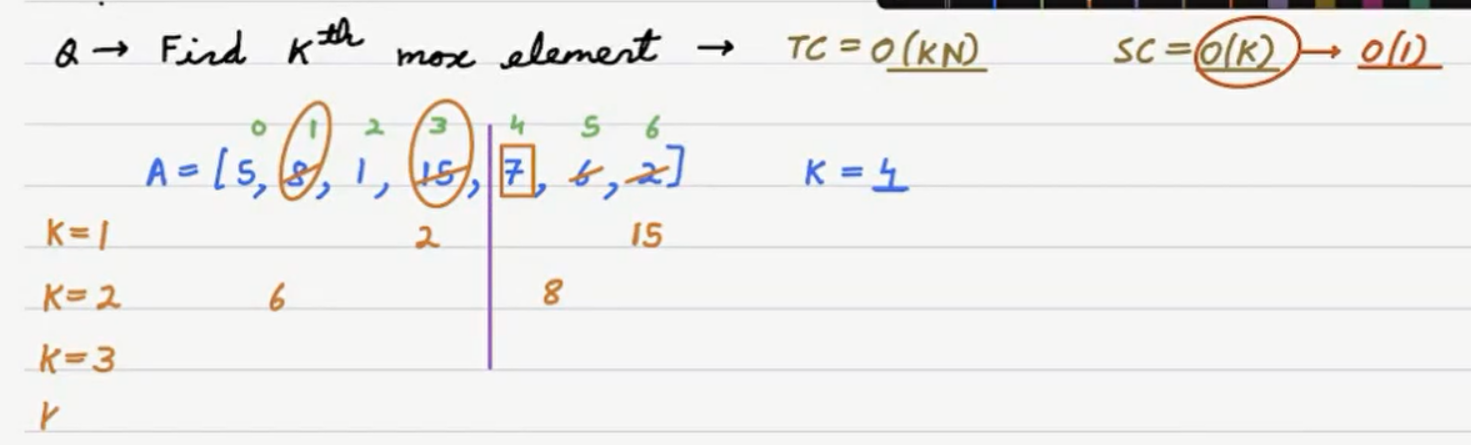 Q → Find Kth max element → TC = O(KN) SC = O(K) → O(1)
0 1 2 3 4 5 6
A = [5, 8, 1, 15, 7, 6, 2] K = 4
K=1 2 15
K=2 6 8
K=3